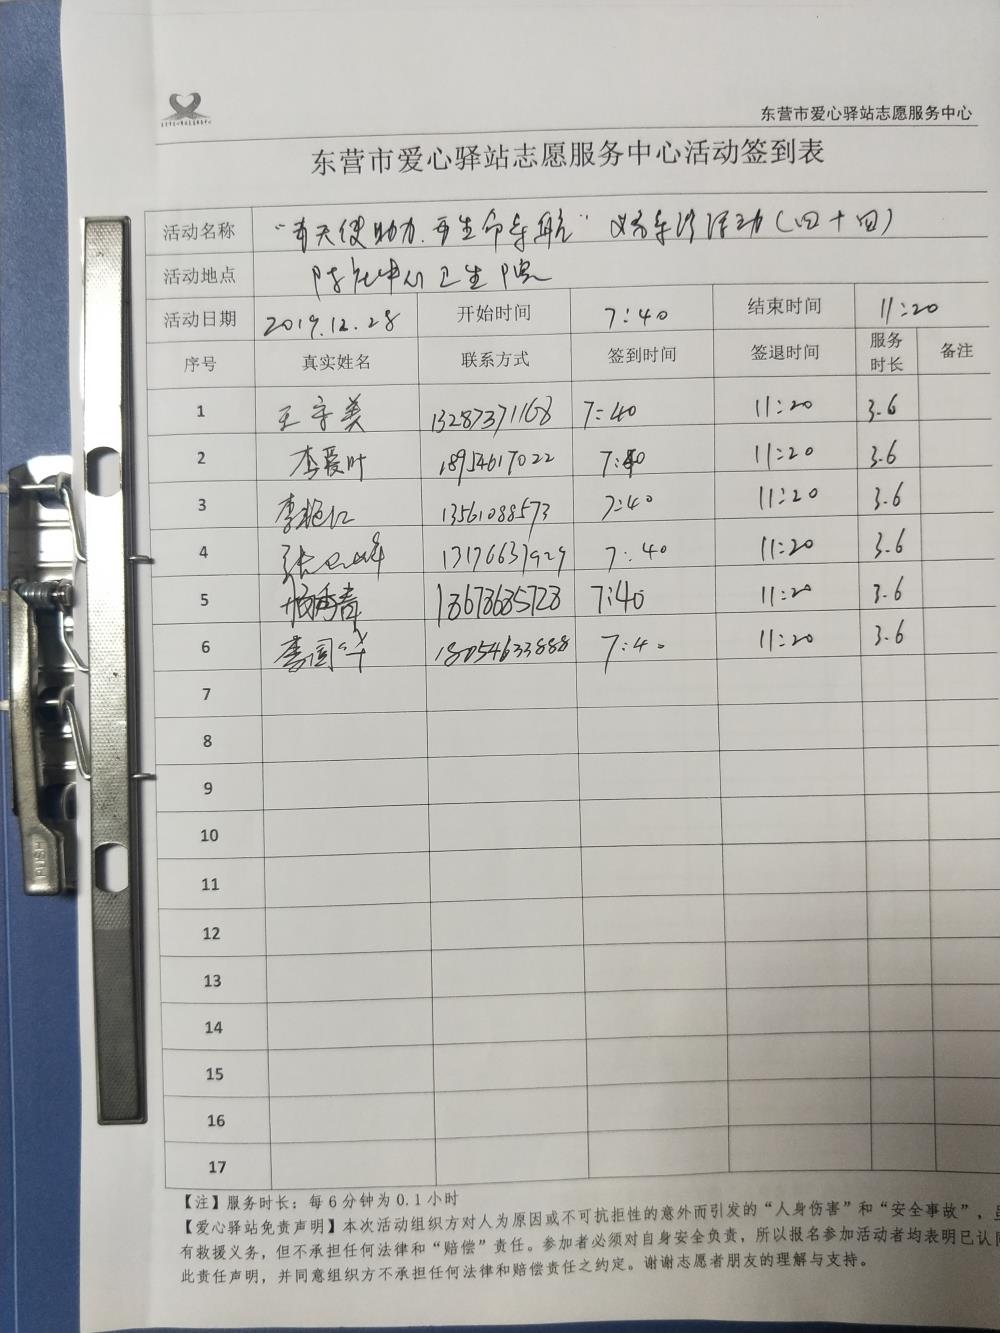 东营市爱心驿站志愿服务中心
东营市爱心驿站志愿服务中心活动签到表
活动名称 “有天使助力.再生命导航”义务导诊活动(四十四)
活动地点 中心卫生院
活动日期 2019.12.28 开始时间 7:40 结束时间 11:20
序号 真实姓名 联系方式 签到时间 签退时间 服务时长 备注
1 王守美 13287371168 7:40 11:20 3.6
2 李爱叶 18954617022 7:40 11:20 3.6
3 李艳红 13561088573 7:40 11:20 3.6
4 13176637929 7:40 11:20 3.6
5 13678685728 7:40 11:20 3.6
6 李国华 18054633888 7:40 11:20 3.6
7
8
9
10
11
12
13
14
15
16
17
【注】服务时长：每6分钟为0.1小时
【爱心驿站免责声明】本次活动组织方对人为原因或不可抗拒性的意外而引发的“人身伤害”和“安全事故”，
有救援义务，但不承担任何法律和“赔偿”责任。参加者必须对自身安全负责，所以报名参加活动者均表明已认同
此责任声明，并同意组织方不承担任何法律和赔偿责任之约定。谢谢志愿者朋友的理解与支持。